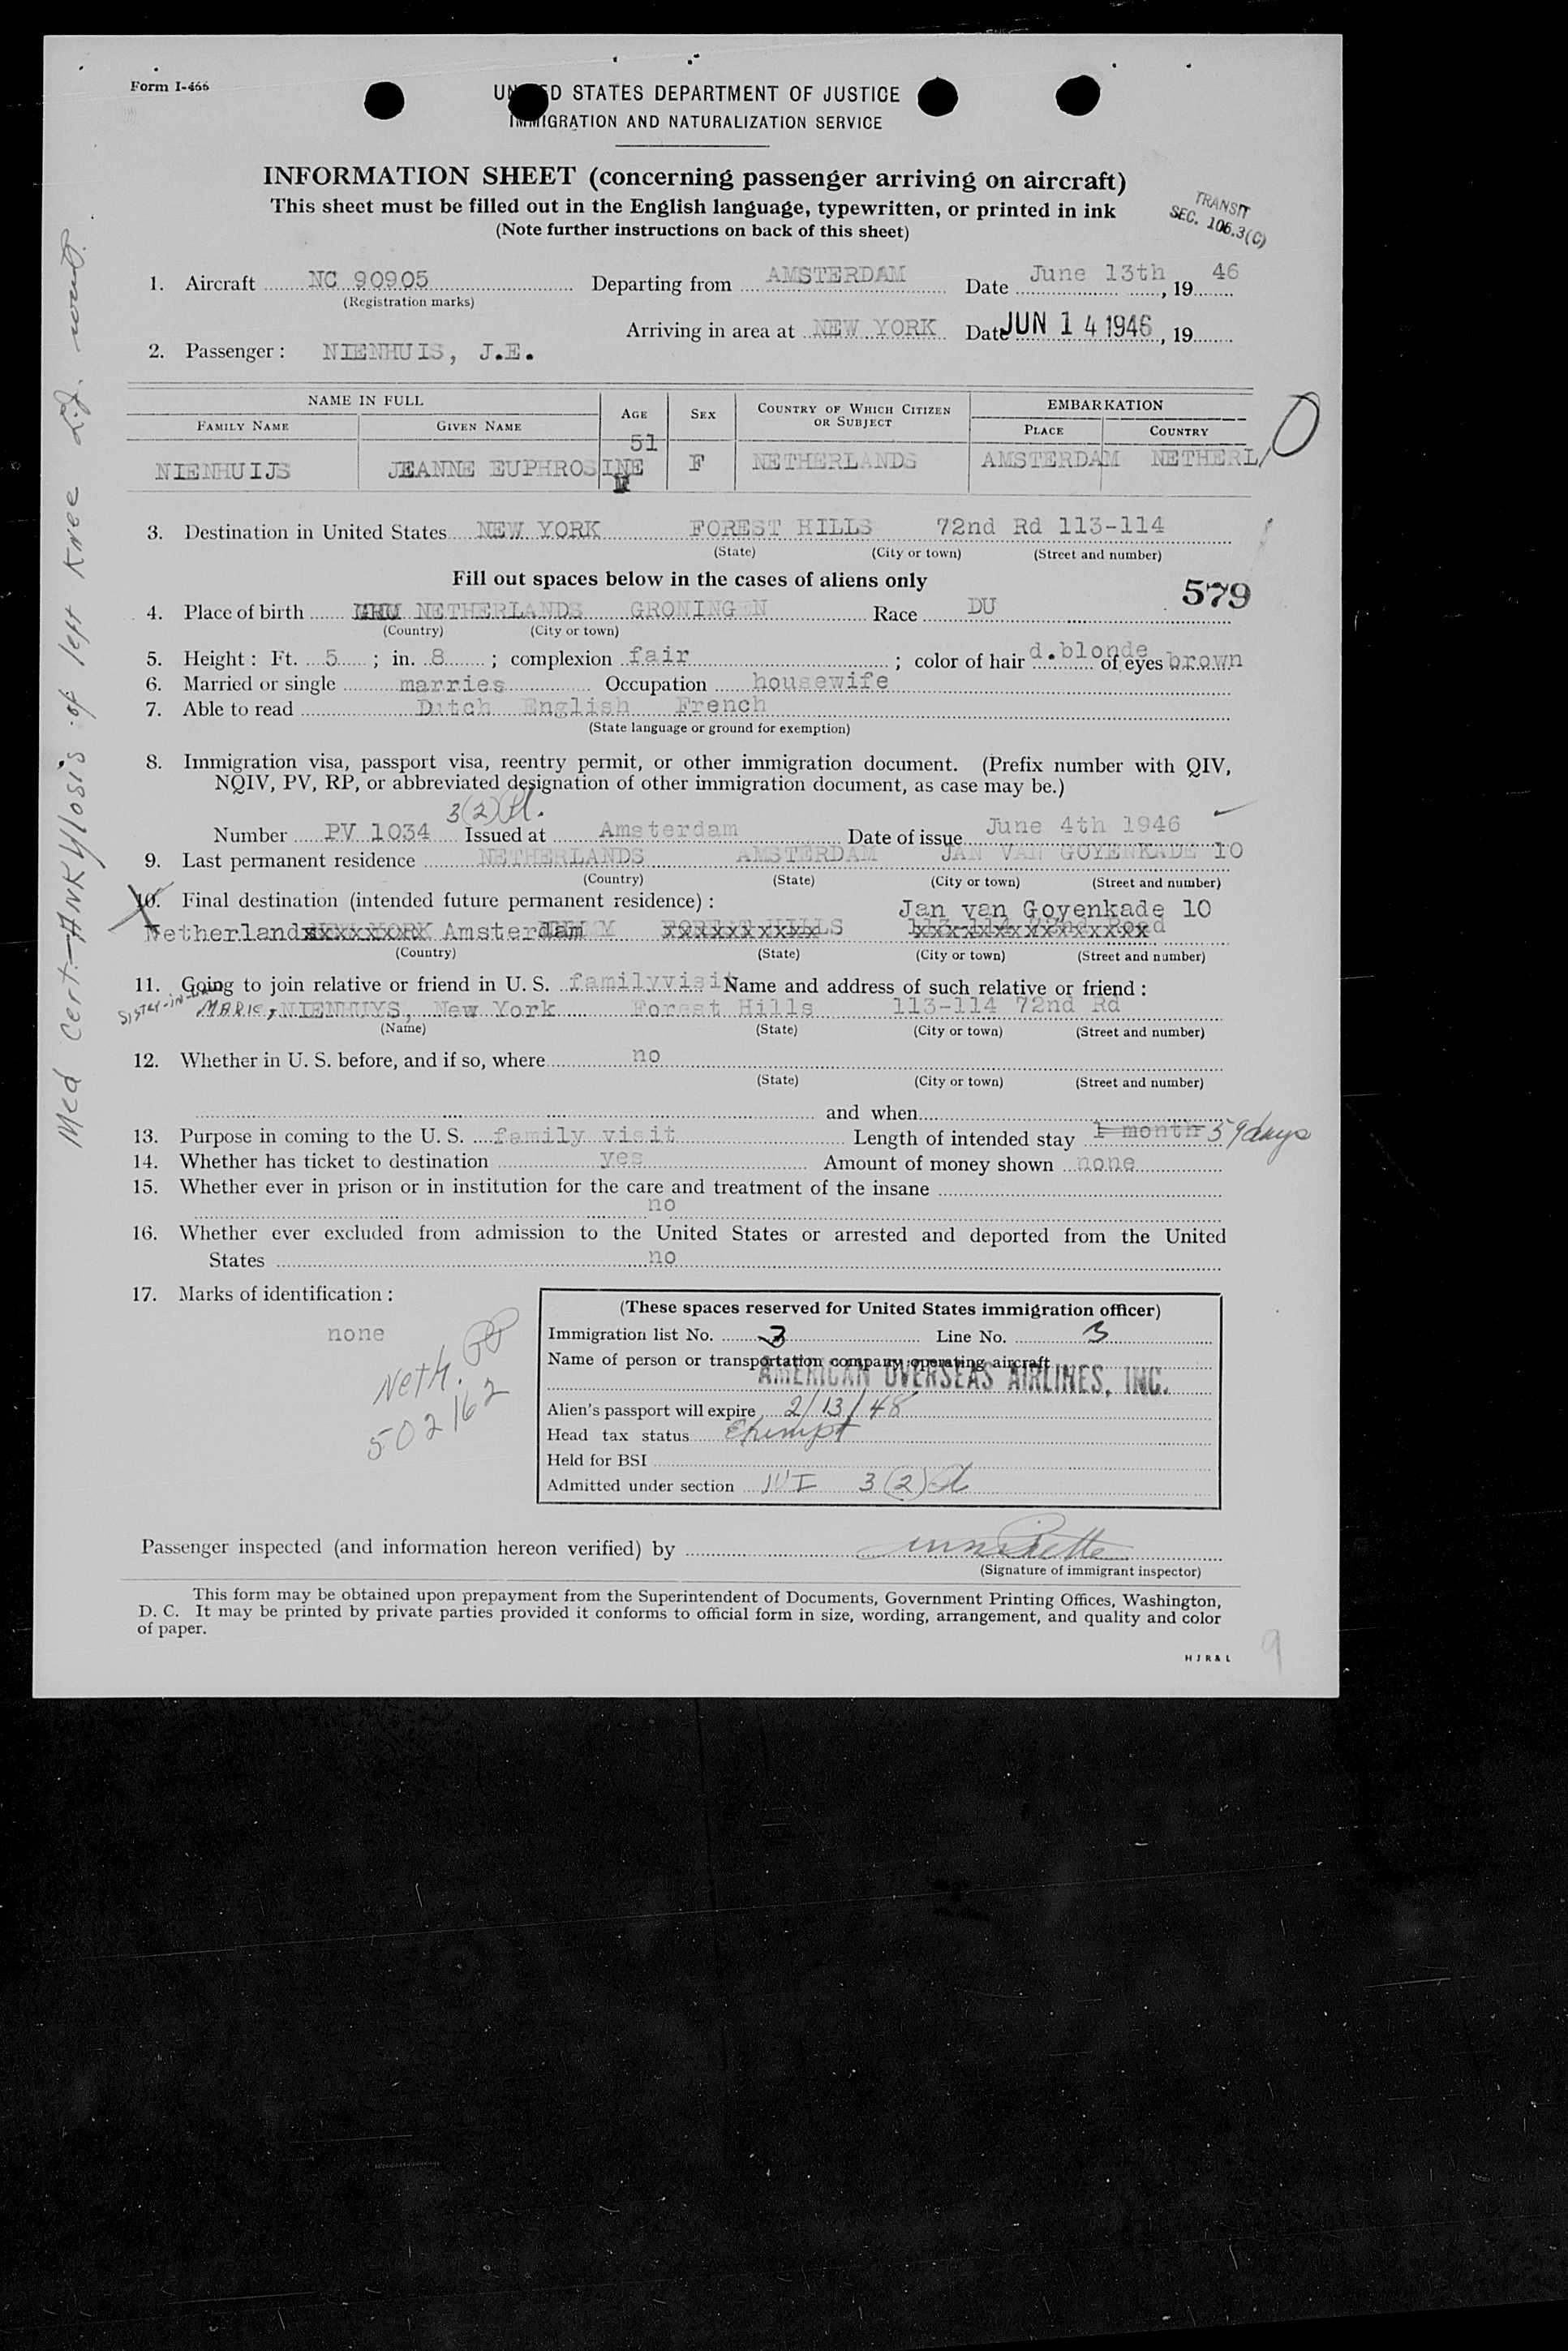 Form I-466
UNITED STATES DEPARTMENT OF JUSTICE
IMMIGRATION AND NATURALIZATION SERVICE
INFORMATION SHEET (concerning passenger arriving on aircraft)
This sheet must be filled out in the English language, typewritten, or printed in ink
(Note further instructions on back of this sheet)
TRANSIT
SEC. 106.3(C)
1. Aircraft NC 90905 Departing from AMSTERDAM Date June 13th, 1946
(Registration marks)
Arriving in area at NEW YORK Date JUN 14 1946, 19
2. Passenger: NIENHUIS, J.E.
NAME IN FULL AGE SEX COUNTRY OF WHICH CITIZEN OR SUBJECT EMBARKATION
FAMILY NAME GIVEN NAME PLACE COUNTRY
51
NIENHUIJS JEANNE EUPHROSINE F NETHERLANDS AMSTERDAM NETHERL
3. Destination in United States NEW YORK FOREST HILLS 72nd Rd 113-114
(State) (City or town) (Street and number)
Fill out spaces below in the cases of aliens only
579
4. Place of birth NETHERLANDS GRONINGEN Race DU
(Country) (City or town)
5. Height: Ft. 5; in. 8; complexion fair; color of hair d.blonde of eyes brown
6. Married or single marries Occupation housewife
7. Able to read Ditch English French
(State language or ground for exemption)
8. Immigration visa, passport visa, reentry permit, or other immigration document. (Prefix number with QIV,
NQIV, PV, RP, or abbreviated designation of other immigration document, as case may be.)
3(2)
Number PV 1034 Issued at Amsterdam Date of issue June 4th 1946
9. Last permanent residence NETHERLANDS AMSTERDAM JAN VAN GOYENKADE 10
(Country) (State) (City or town) (Street and number)
10. Final destination (intended future permanent residence): Jan van Goyenkade 10
Netherlands Amsterdam
(Country) (State) (City or town) (Street and number)
11. Going to join relative or friend in U. S. familyvisit Name and address of such relative or friend:
SISTER-IN-LAW MARIE, NIENHUYS, New York Forest Hills 113-114 72nd Rd
(Name) (State) (City or town) (Street and number)
12. Whether in U. S. before, and if so, where no
(State) (City or town) (Street and number)
and when
13. Purpose in coming to the U. S. family visit Length of intended stay 1 month 59 days
14. Whether has ticket to destination yes Amount of money shown none
15. Whether ever in prison or in institution for the care and treatment of the insane
no
16. Whether ever excluded from admission to the United States or arrested and deported from the United
States no
17. Marks of identification:
none
Neth. PP
502162
(These spaces reserved for United States immigration officer)
Immigration list No. 3 Line No. 3
Name of person or transportation company operating aircraft
AMERICAN OVERSEAS AIRLINES, INC.
Alien's passport will expire 2/13/48
Head tax status Exempt
Held for BSI
Admitted under section 3(2)
Passenger inspected (and information hereon verified) by
(Signature of immigrant inspector)
This form may be obtained upon prepayment from the Superintendent of Documents, Government Printing Offices, Washington,
D. C. It may be printed by private parties provided it conforms to official form in size, wording, arrangement, and quality and color
of paper.
H J R & L
9
Med Cert.-ANKylosis of left Knee